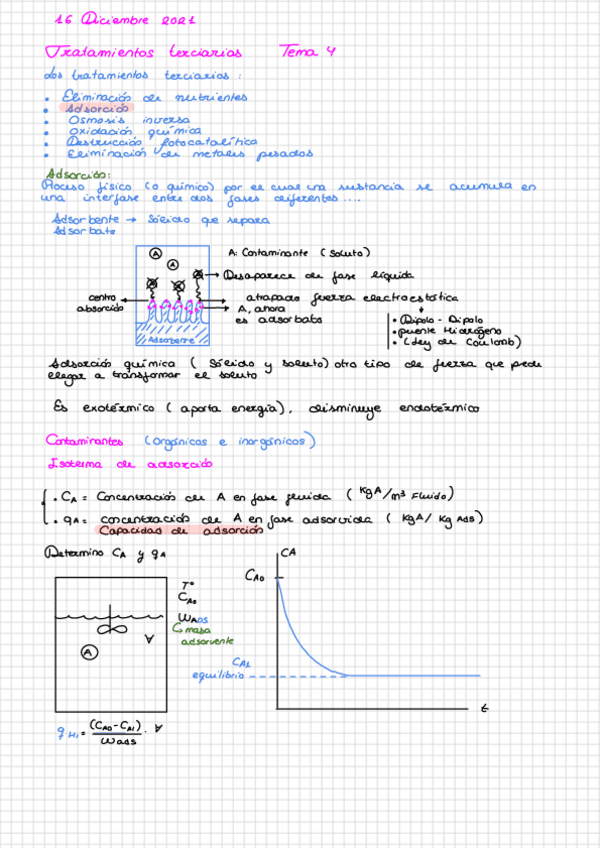 16 Diciembre 2021
Tratamientos terciarios Tema 4
dos tratamientos terciarios :
• Eliminación de nutrientes
• Adsorción
• Osmosis inversa
• Oxidación química
• Destrucción fotocatalítica
• Eliminación de metales pesados
Adsorción:
Proceso físico (o químico) por el cual una sustancia se acumula en
una interfase entre dos fases diferentes ....
Adsorbente → Sólido que separa
Adsorbato
A: Contaminante ( soluto)
Desaparece de fase líquida
centro
absorcido
atrapado fuerza electroestática
A, ahora
es adsorbato
• Dipolo - Dipolo
• puente Hidrógeno
• (Ley de Coulomb)
Adsorbente
Adsorción química ( Sólido y soluto) otro tipo de fuerza que puede
llegar a transformar el soluto
Es exotérmico ( aporta energía), disminuye endotérmico
Contaminantes (orgánicos e inorgánicos)
Isoterma de adsorción
• CA = Concentración de A en fase fluida ( KgA/m³ Fluido)
• qA = concentración de A en fase adsorvida ( KgA/ Kg Ads)
Capacidad de adsorción
Determino CA y qA
T°
CA0
WADS
masa
adsorvente
A
∀
CA
CA0
CA1
equilibrio
t
qH1 = (CA0-CA1) / wads . ∀